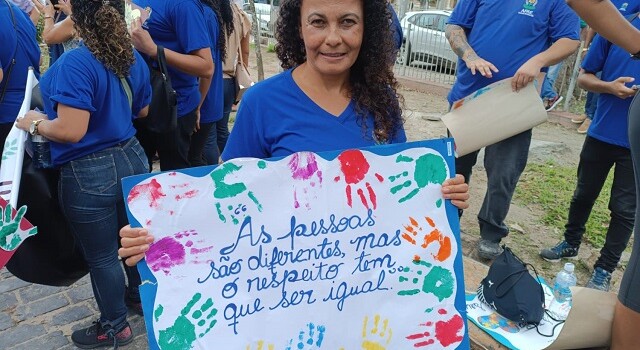 "As pessoas
são diferentes, mas
o respeito tem
que ser igual."